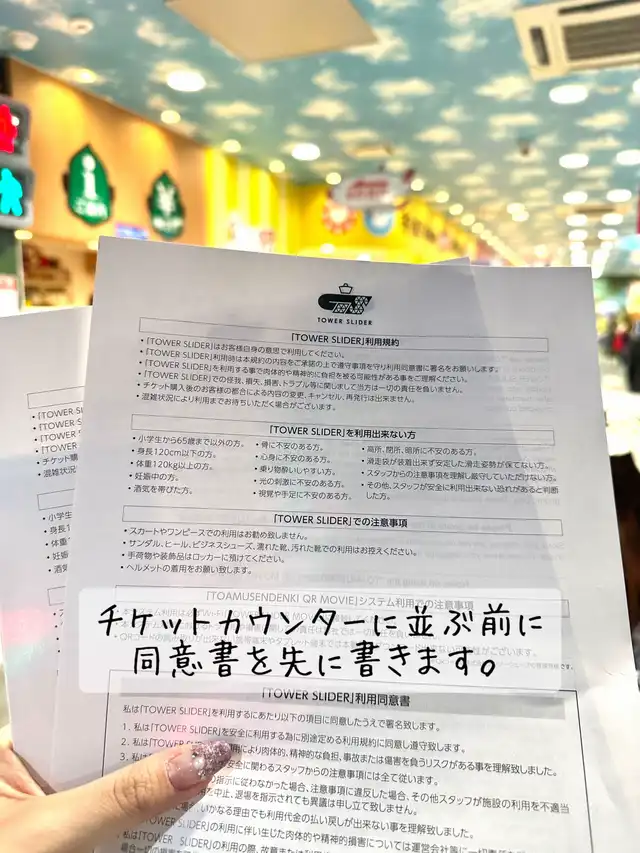 TOWER SLIDER
「TOWER SLIDER」利用規約
・「TOWER SLIDER」はお客様自身の意思で利用してください。
・「TOWER SLIDER」利用時は本規約の内容をご承諾の上で遵守事項を守り利用同意書に署名をお願いします。
・「TOWER SLIDER」を利用する事で肉体的や精神的に負担を被る可能性がある事をご理解ください。
・「TOWER SLIDER」での怪我、損失、損害、トラブル等に関しまして当方は一切の責任を負いません。
・チケット購入後のお客様の都合による内容の変更、キャンセル、再発行は出来ません。
・混雑状況により利用までお待ちいただく場合がございます。
「TOWER SLIDER」を利用出来ない方
・小学生から65歳まで以外の方。
・身長120cm以下の方。
・体重120kg以上の方。
・妊娠中の方。
・酒気を帯びた方。
・骨に不安のある方。
・心身に不安のある方。
・乗り物酔いしやすい方。
・光の刺激に不安のある方。
・視覚や手足に不安のある方。
・高所、閉所、暗所に不安のある方。
・滑走袋が装着出来ず安定した滑走姿勢が保てない方。
・スタッフからの注意事項を理解し厳守していただけない方。
・その他、スタッフが安全に利用出来ない恐れがあると判断
した方。
「TOWER SLIDER」での注意事項
・スカートやワンピースでの利用はお勧め致しません。
・サンダル、ヒール、ビジネスシューズ、濡れた靴、汚れた靴での利用はお控えください。
・手荷物や装飾品はロッカーに預けてください。
・ヘルメットの着用をお願い致します。
「TOAMUSENDENKI QR MOVIE」システム利用での注意事項
チケットカウンターに並ぶ前に
同意書を先に書きます。
「TOWER SLIDER」利用同意書
私は「TOWER SLIDER」を利用するにあたり以下の項目に同意したうえで署名致します。
1. 私は「TOWER SLIDER」を安全に利用する為に別途定める利用規約に同意し遵守致します。
2. 私は「TOWER SL
用により肉体的、精神的な負担、事故または傷害を負うリスクがある事を理解致しました。
3. 私は
安全に関わるスタッフからの注意事項には全て従います。
の指示に従わなかった場合、注意事項に違反した場合、その他スタッフが施設の利用を不適当
用を中止、退場を指示されても異議は申し立て致しません。
場合、いかなる理由でも利用代金の払い戻しが出来ない事を理解致しました。
私は「TOWER SLIDER」の利用に伴い生じた肉体的や精神的損害については運営会社等に一切責任を
私は「TOWER SLIDER」の利用の際、故意または